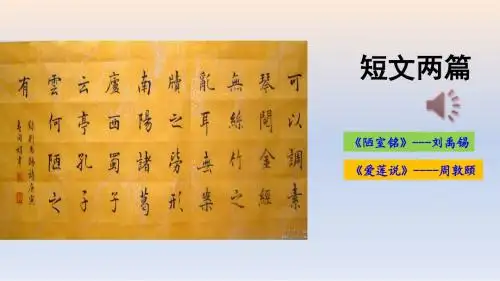 可以調素
琴閱金經
無絲竹之
亂耳無案
牘之勞形
南陽諸葛
廬西蜀子
云亭孔子
雲何陋之
有
短文两篇
《陋室铭》---刘禹锡
《爱莲说》----周敦颐